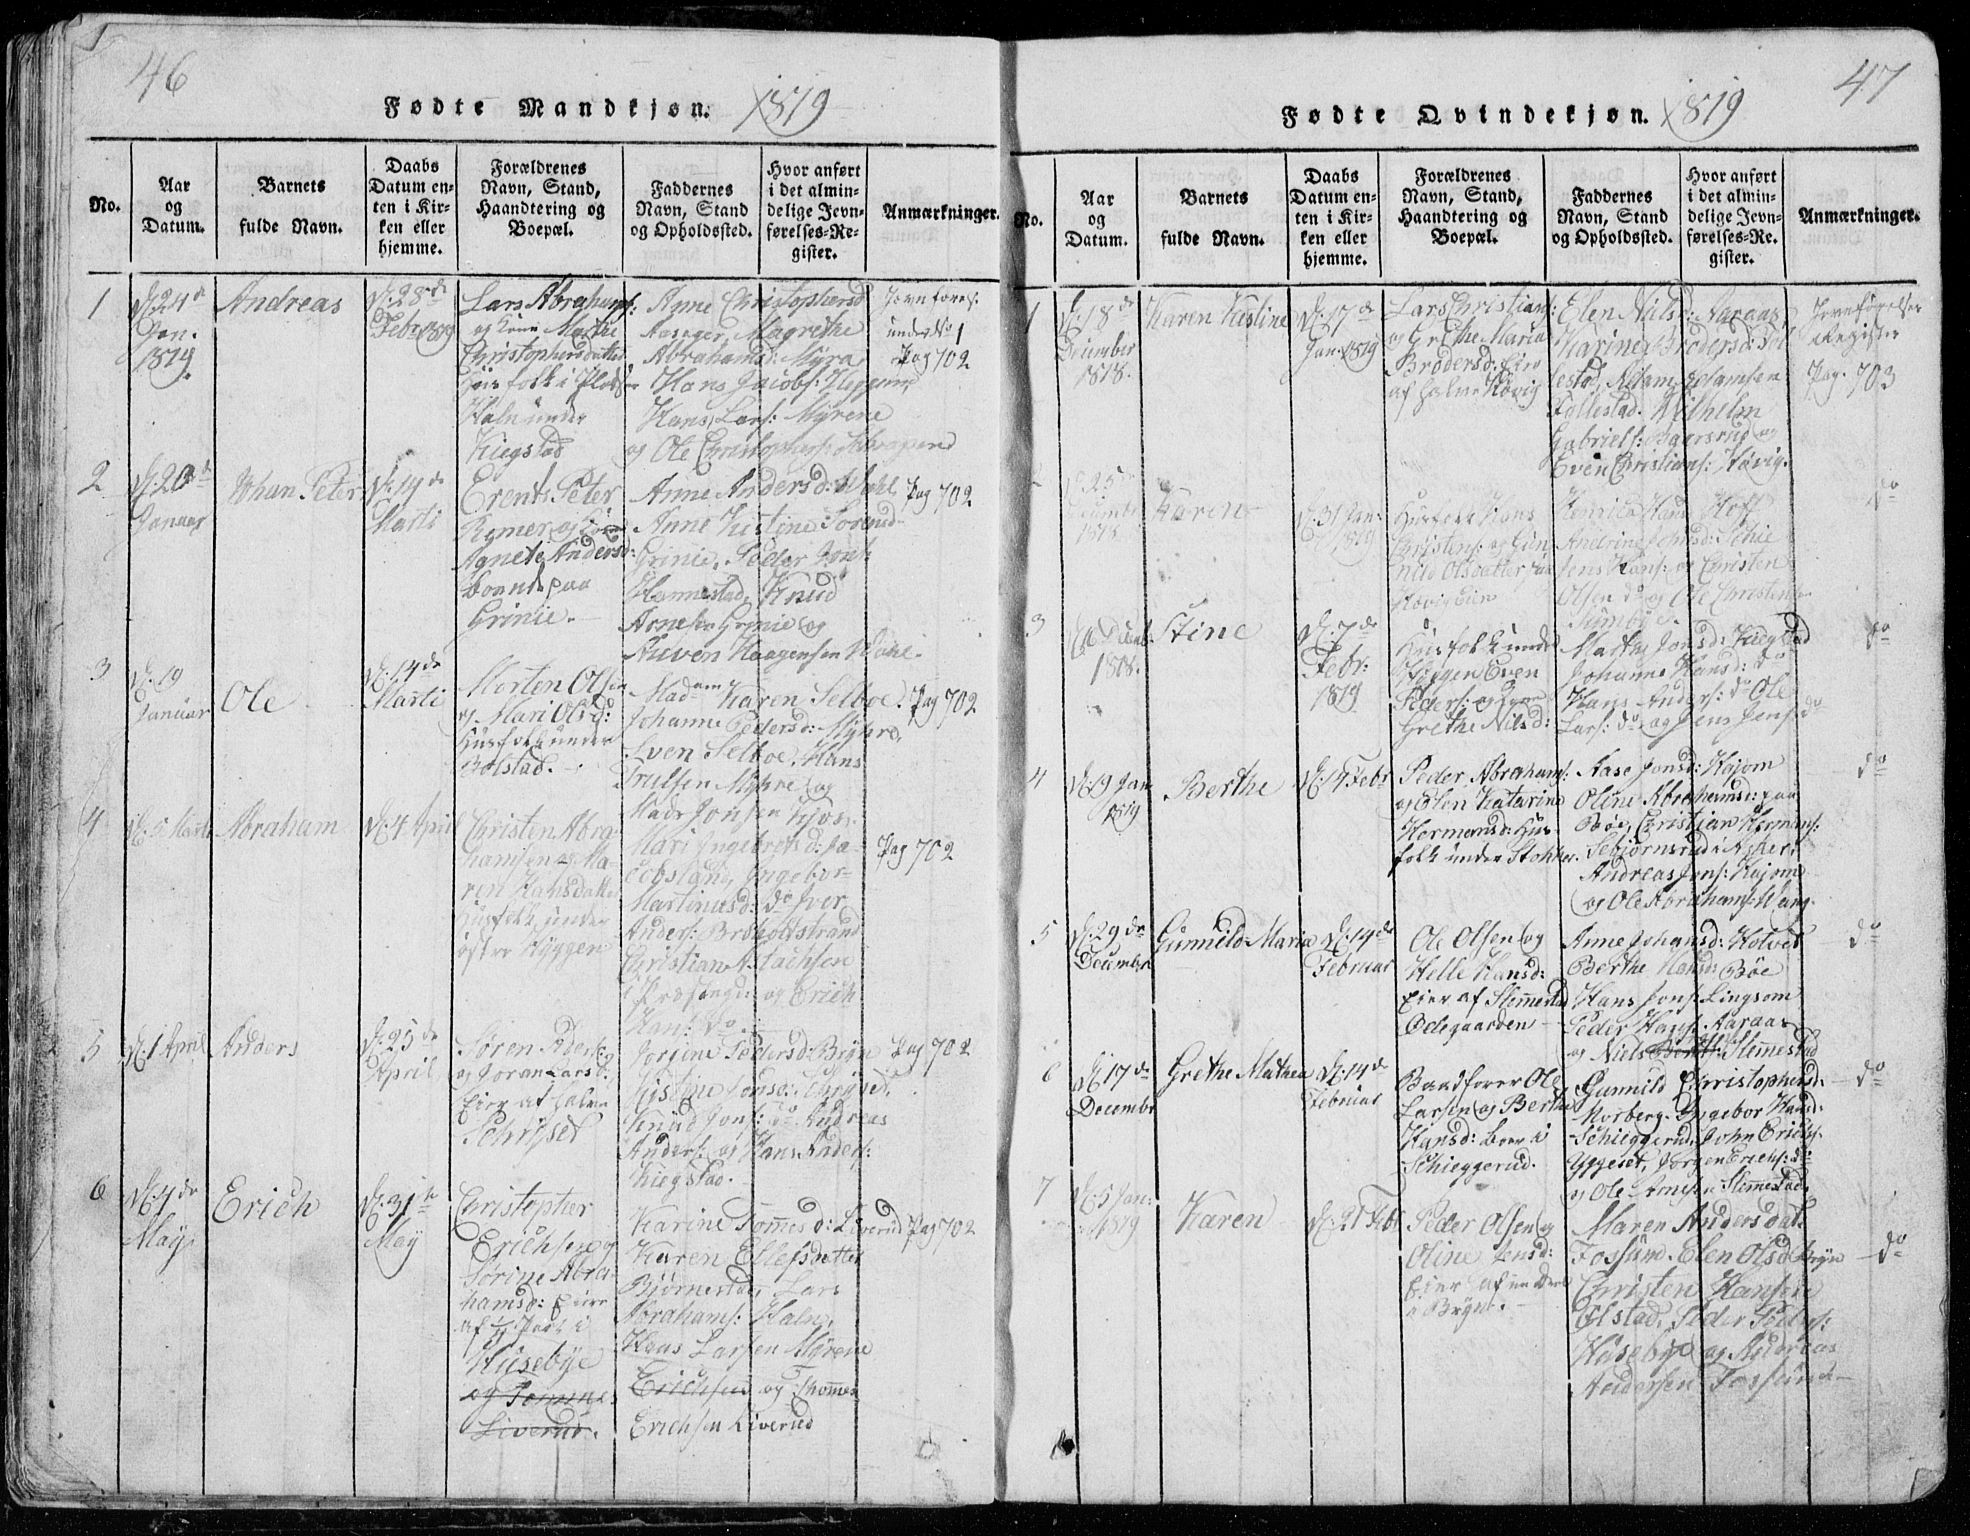 46
Fødte Mandkjøn. 1819
No.
Aar
og
Datum.
Barnets
fulde Navn.
Daabs
Datum en-
ten i Kir-
ken eller
hjemme.
Forældrenes
Navn, Stand,
Haandtering og
Boepæl.
Faddernes
Navn, Stand
og Opholdssted.
Hvor anført
i det almin-
delige Jevn-
førelses-Re-
gister.
Anmærkninger.
1
d: 24de
Jan.
1819.
Andreas
d: 28de
Feb: 1819
Lars Abrahams:
og Kone Marthe
Christophersdatter
Huusfolk i Pladsen
Haln under
Kiegstad
Anne Christophersd
Aasager, Magrethe
Abrahamsd: Myra
Hans Jacobs: Heggum
Hans Lars: Myrene
og Ole Christophers:
Jevnførels:
under No 1
Pag 702
2
d: 20de
Januar
Johan Peter
d: 14de
Marti
Erents Peter
Rømer og Kone
Agnete Andersd:
boende paa
Grinie.
Anne Andersd: Wahl
Anne Kistine Sørensd
Grinie, Peder Jons:
Hannestad, Knud
Arnesen Grinie og
Auven Haagensen Wahl.
Pag 702
3
d: 19
Januar
Ole
d: 14de
Marti
Morten Olsen
og Mari Olsd:
Huusfolk under
Bolstad.
Madam Karen Selboe.
Johanne Pedersd: Myhre,
Sven Selboe, Hans
Trulsen Myhre og
Mads Jonsen
Pag 702
4
d: 5 Marti
Abraham
d: 4 April
Christen Abra-
hamsen og Ma-
ren Hansdatter
Huusfolk under
østre Hyggen
Mari Ingebregtsd: Ja-
cobsland, Ingebor
Martinusd: do Iver
Anders: Brøholtstrand
Christian A. Jachsen
og Erich
Hans: do.
Pag 702
5
d: 1 April
Anders
d: 25de
April
Søren Peders:
og Joran Larsd:
Eier af halve
Schryset
Jorine Pedersd: Bryn
Kistine Jonsd: Schryset,
Knud Jons: do Andreas
Anders: og Hans Anders:
Kiegstad.
Pag 702
6
d: 7de
May
Erich
d: 31te
May
Christopher
Erichsen og
Sørine Abra-
hamsd: Eier
af ½ Part i
Husebye
og Tommes
Liverud.
Karine Tommesd: Liverud
Karen Ellefsdatter
Bjørnestad, Lars
Abrahams: Haln,
Hans Larsen Myrene
Erichsen og Thommes
Erichsen Liverud
Pag 702
47
Fødte Qvindekjøn. 1819
No.
Aar
og
Datum.
Barnets
fulde Navn.
Daabs
Datum en-
ten i Kir-
ken eller
hjemme.
Forældrenes
Navn, Stand,
Haandtering og
Boepæl.
Faddernes
Navn, Stand
og Opholdssted.
Hvor anført
i det almin-
delige Jevn-
førelses-Re-
gister.
Anmærkninger.
1
d: 18de
December
1818.
Karen Kistine
d: 17de
Jan: 1819
Lars Christians:
og Grethe Maria
Brodersd: Eier
af halve Høvig
Elen Nilsd: Aaraas,
Karine Brodersd: Fol
lestad, Adam Adamsen
Follestad. Wilhelm
Gabriels: Baarsrud og
Even Christians: Høvig.
Jevnførelses
Register
Pag. 703
2
d: 25de
December
1818
Karen
d: 31 Jan:
1819
Husfolk Hans
Christens: og Gun-
nild Olsdatter paa
Høvig Eie
Hoff
Andrine Jensd:
Jens Hans: og Christen
Olsen do og Ole Christens:
do
3
1818.
Stine
d: 7de
Febr:
1819
Husfolk under
Hyggen Even
Peders: og
Grethe Nilsd:
Marthe Jonsd: Kiegstad
Johanne Hansd: do
Hans Anders: do Ole
Lars: do og Jens Jens: do
do
4
d: 9 Jan
1819
Berthe
d: 14 Febr
Peder Abrahams:
og Elen Katarina
Hermansd: Hus-
folk under Stokker.
Aase Jonsd: Kajom
Oline Abrahamsd: paa
Bøe, Christian Hermans:
Sebjørnsrud i Asker,
Andreas Jons: Kajom
og Ole Abrahams: Wang.
do
5
d: 29de
Decembr
Gunnild Maria
d: 14de
Februar
Ole Olsen og
Helle Hansd:
Eier af Slemmestad
Ødegaarden
Anne Johansd: Holved
Berthe Hansd: Bøe
Hans Jons: Lingsom
Peder Hans: Aaraas
og Niels Bents: Slemmestad
do
6
d: 17de
Decembr
Grethe Mathea
d: 14de
Februar
Baadfører Ole
Larsen og Berthe
Hansd: boer i
Schieggerud.
Gunnild Christophersd:
Morberg. Ingebor Hansd:
Schieggerud, John Erichs:
Yggeset, Jørgen Erichs: do
og Ole Arnesen Slemmestad,
do
7
d: 5 Jan:
1819
Karen
d: 21 Feb:
Peder Olsen og
Oline Jensd:
Eier af en Deel
i Bryn.
Maren Andersdat:
Fossum. Elen Olsd Bryn
Christen Hansen
Ølstad, Peder Peders:
Husebye og Andreas
Andersen Fossum
do